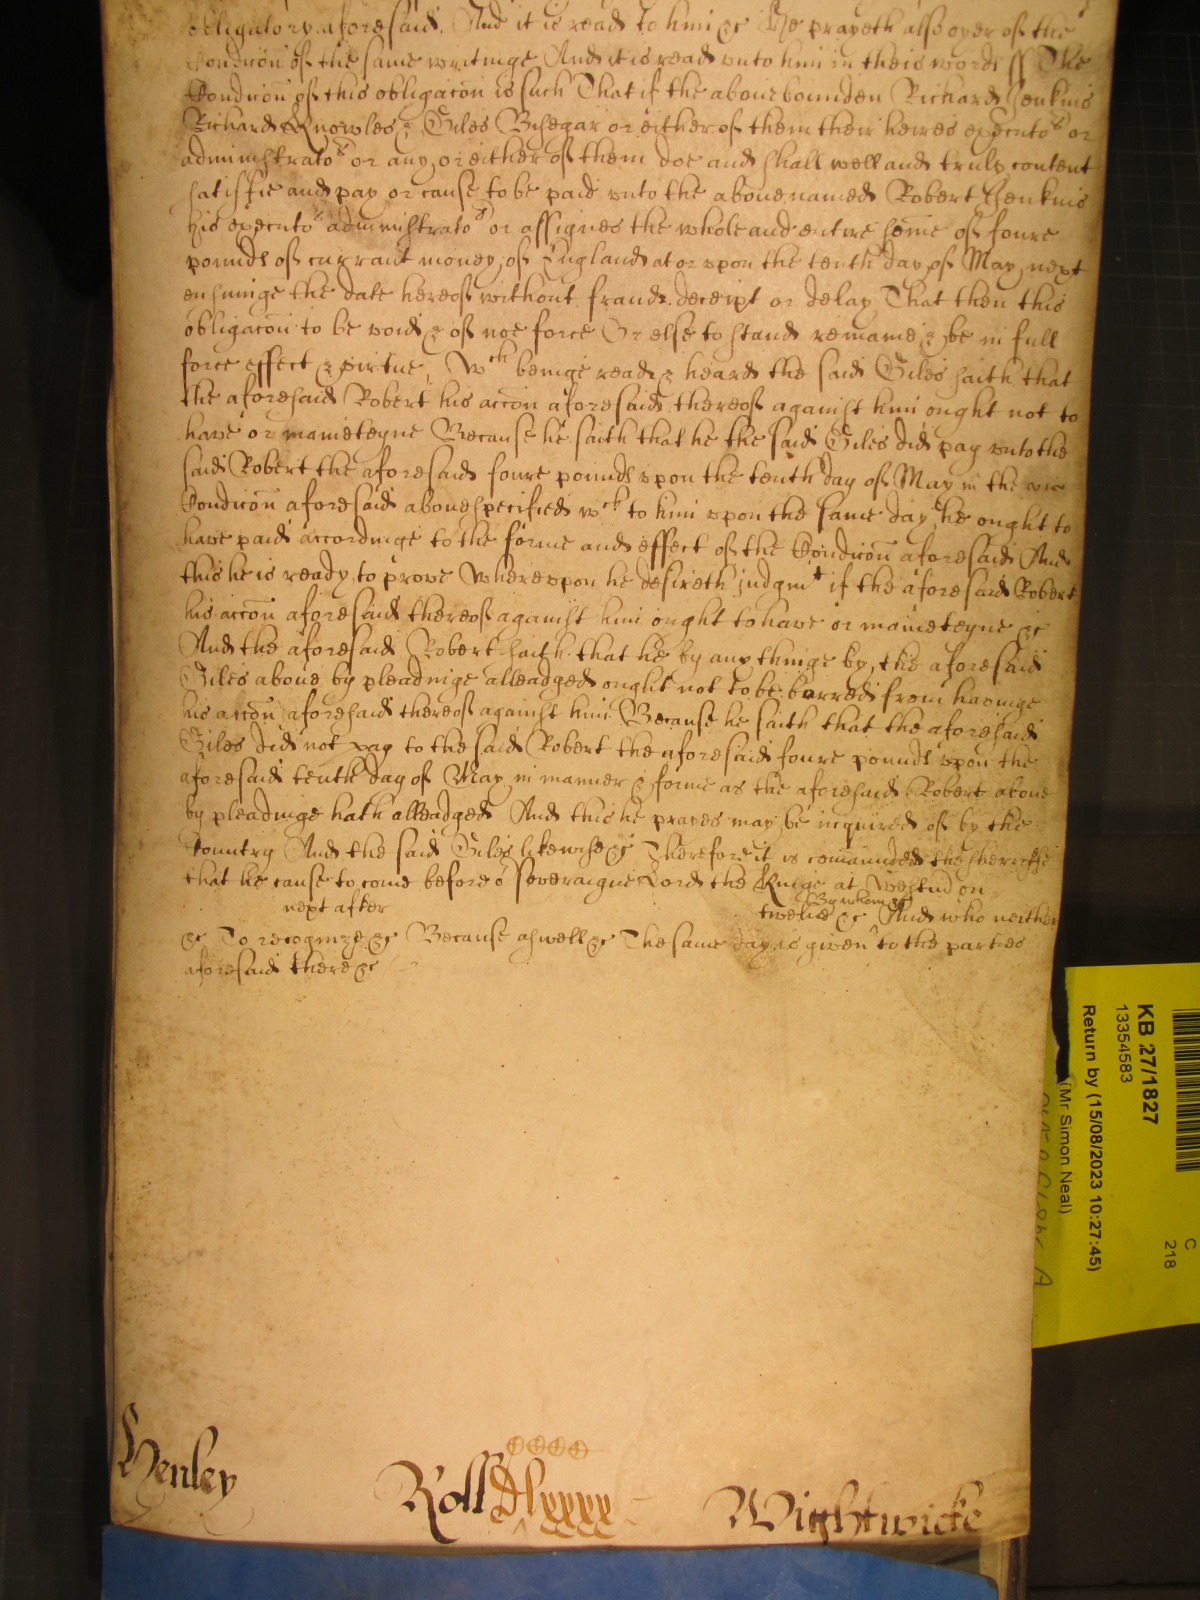 obligatory aforesaid. And it is read to him &c He prayeth also oyer of the
Condicōn of the same writinge And it is read vnto him in theis words ss The
Condicōn of this obligacōn is such That if the abouebounden Richard Jenkins
Richard Knowles & Giles Bisegar or either of them their heires executors or
administrators or any or either of them doe and shall well and truly content
satisfie and pay or cause to be paid vnto the abouenamed Robert Jenkins
his executors administrators or assignes the whole and entire some of foure
pounds of currant money of England at or vpon the tenth day of May next
ensuinge the date hereof without fraude deceipt or delay That then this
obligacōn to be void & of noe force Or else to stand remaine & be in full
force effect & virtue, Wch beinge read & heard the said Giles saith that
the aforesaid Robert his accōn aforesaid thereof against him ought not to
have or mainteyne Because he saith that he the said Giles did pay vnto the
said Robert the aforesaid foure pounds vpon the tenth day of May in the
Condicōn aforesaid aboue specified wch to him vpon the same day he ought to
have paid accordinge to the forme and effect of the Condicōn aforesaid And
this he is ready to prove Wherevpon he desireth judgmt if the aforesaid Robert
his accōn aforesaid thereof against him ought to have or mainteyne &c
And the aforesaid Robert saith that he by any thinge by the aforesaid
Giles aboue by pleadinge alleadged ought not to be barred from haveinge
his accōn aforesaid thereof against him Because he saith that the aforesaid
Giles did not pay to the said Robert the aforesaid foure pounds vpon the
aforesaid tenth day of May in manner & forme as the aforesaid Robert aboue
by pleadinge hath alleadged And this he prayes may be inquired of by the
Country And the said Giles likewise &c Therefore it is comaunded the sherriffe
that he cause to come before or soveraigne Lord the Kinge at Westm̄ on
next after twelve &c (By whom &c) And who neither
&c To recognize &c Because aswell &c The same day is given to the parties
aforesaid there &c
Henley Roll Dlxxxx Wightwicke
KB 27/1827
13354583
Return by (15/08/2023 10:27:45)
(Mr Simon Neal)
C
218
A